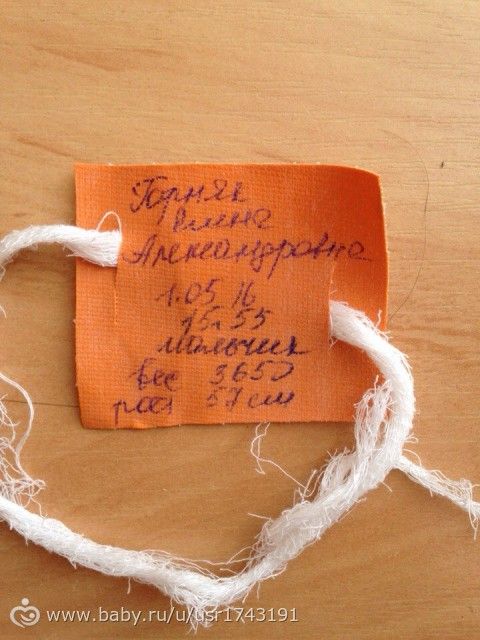 Горняк
Елина
Александровна
1.05 16
15.55
мальчик
вес 3650
рост 57 см
www.baby.ru/u/usr1743191